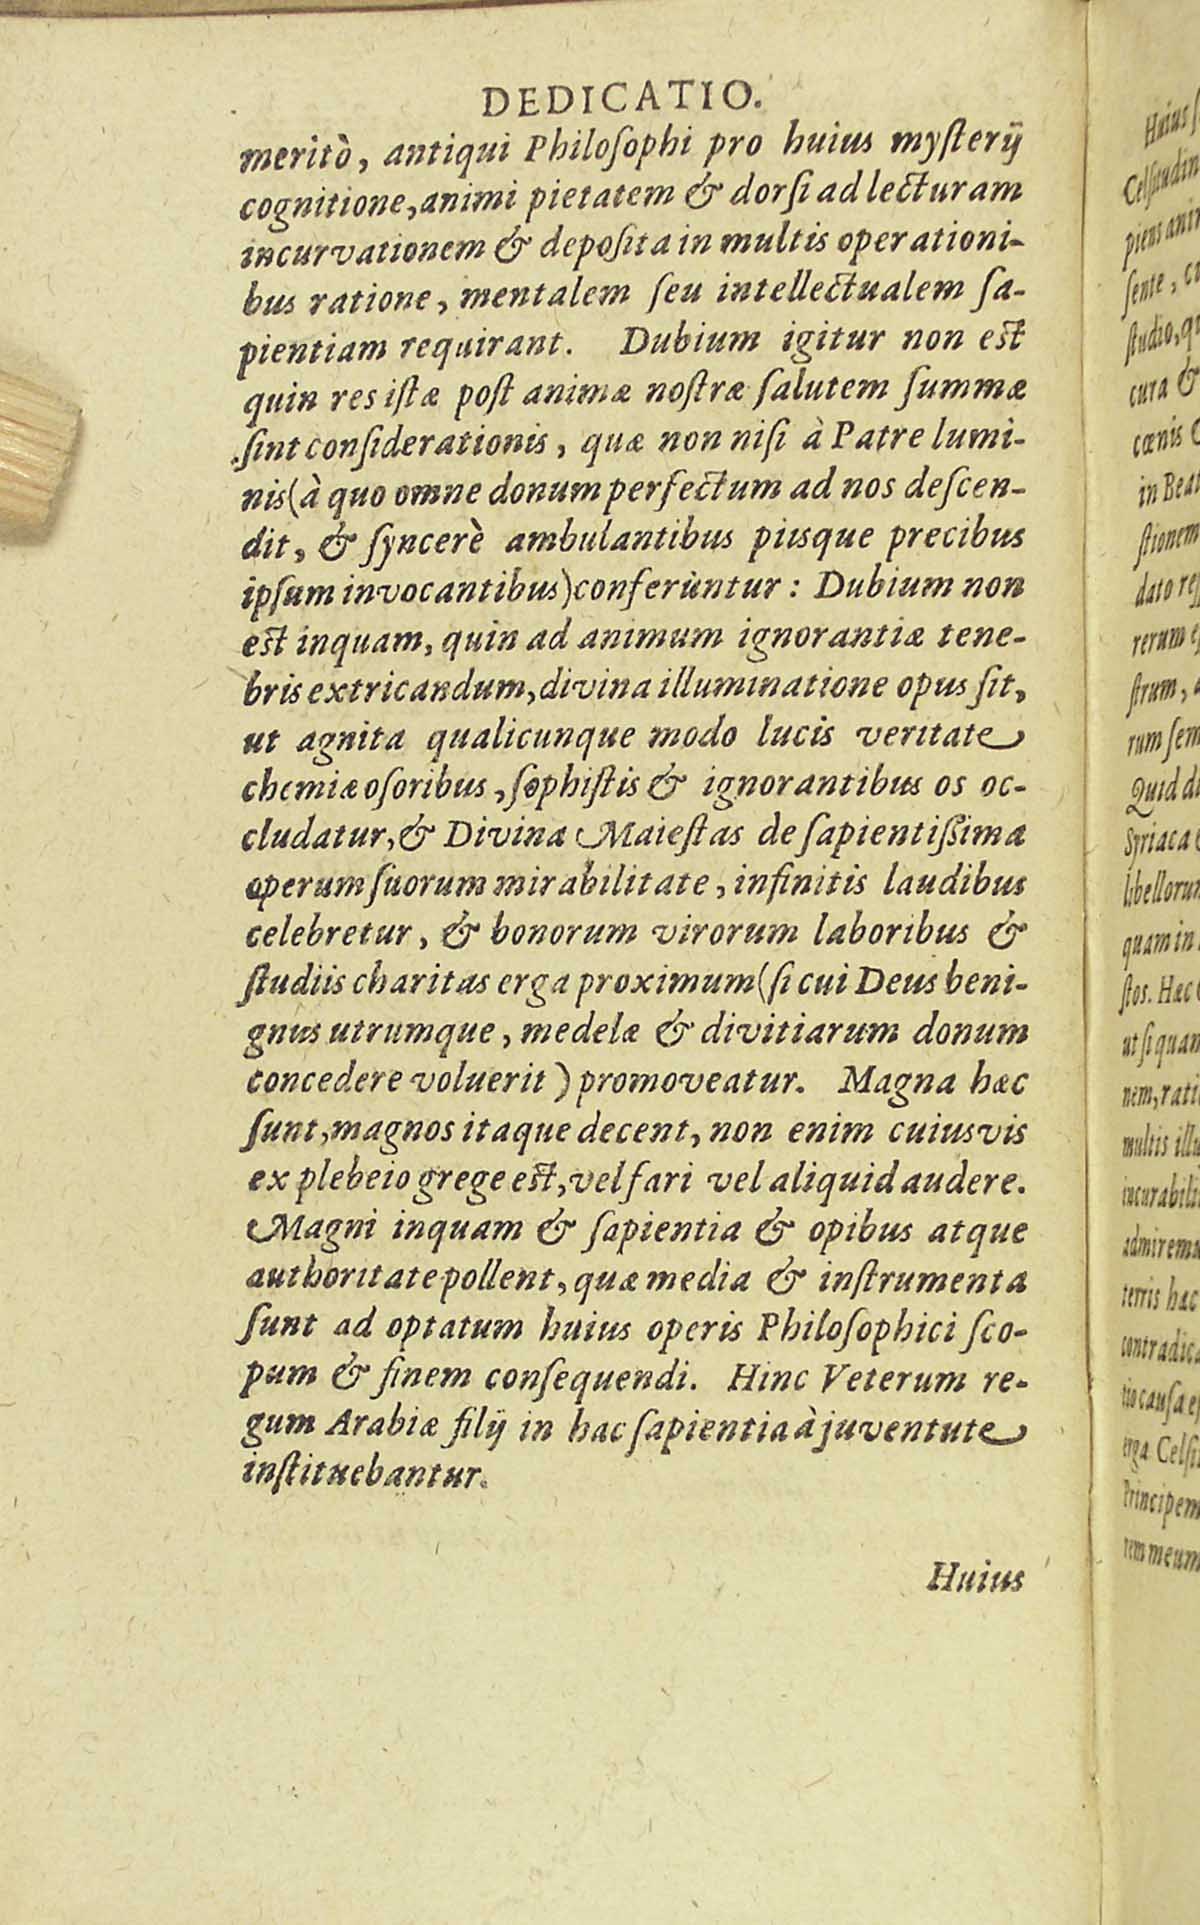 DEDICATIO.
meritò, antiqui Philoſophi pro huius myſterij
cognitione, animi pietatem & dorſi ad lecturam
incurvationem & depoſita in multis operationi-
bus ratione, mentalem ſeu intellectualem ſa-
pientiam requirant. Dubium igitur non est
quin res iſtæ poſt animæ noſtræ ſalutem ſummæ
ſint conſiderationis, quæ non niſi à Patre lumi-
nis (à quo omne donum perfectum ad nos deſcen-
dit, & ſyncerè ambulantibus piisque precibus
ipſum invocantibus) conferùntur: Dubium non
est inquam, quin ad animum ignorantiæ tene-
bris extricandum, divina illuminatione opus ſit,
ut agnita qualicunque modo lucis veritate
chemiæ oſoribus, ſophiſtis & ignorantibus os oc-
cludatur, & Divina Maieſtas de ſapientiſſima
operum ſuorum mirabilitate, infinitis laudibus
celebretur, & bonorum virorum laboribus &
ſtudiis charitas erga proximum (ſi cui Deus beni-
gnus utrumque, medelæ & divitiarum donum
concedere voluerit) promoveatur. Magna hæc
ſunt, magnos itaque decent, non enim cuiusvis
ex plebeio grege est, vel fari vel aliquid audere.
Magni inquam & ſapientia & opibus atque
authoritate pollent, quæ media & inſtrumenta
ſunt ad optatum huius operis Philoſophici ſco-
pum & finem conſequendi. Hinc Veterum re-
gum Arabiæ filij in hac ſapientia à juventute
inſtituebantur.
Huius
Huius
piens
ſente,
ſtudio,
cura &
cœnis
ſtionem
dato
rerum
ſtrum,
rum
Quid
Syriaca
quam in
ſtos. Hæc
ut ſi quan
nem,
multis
terris hæc
erga
Principem
rem meum